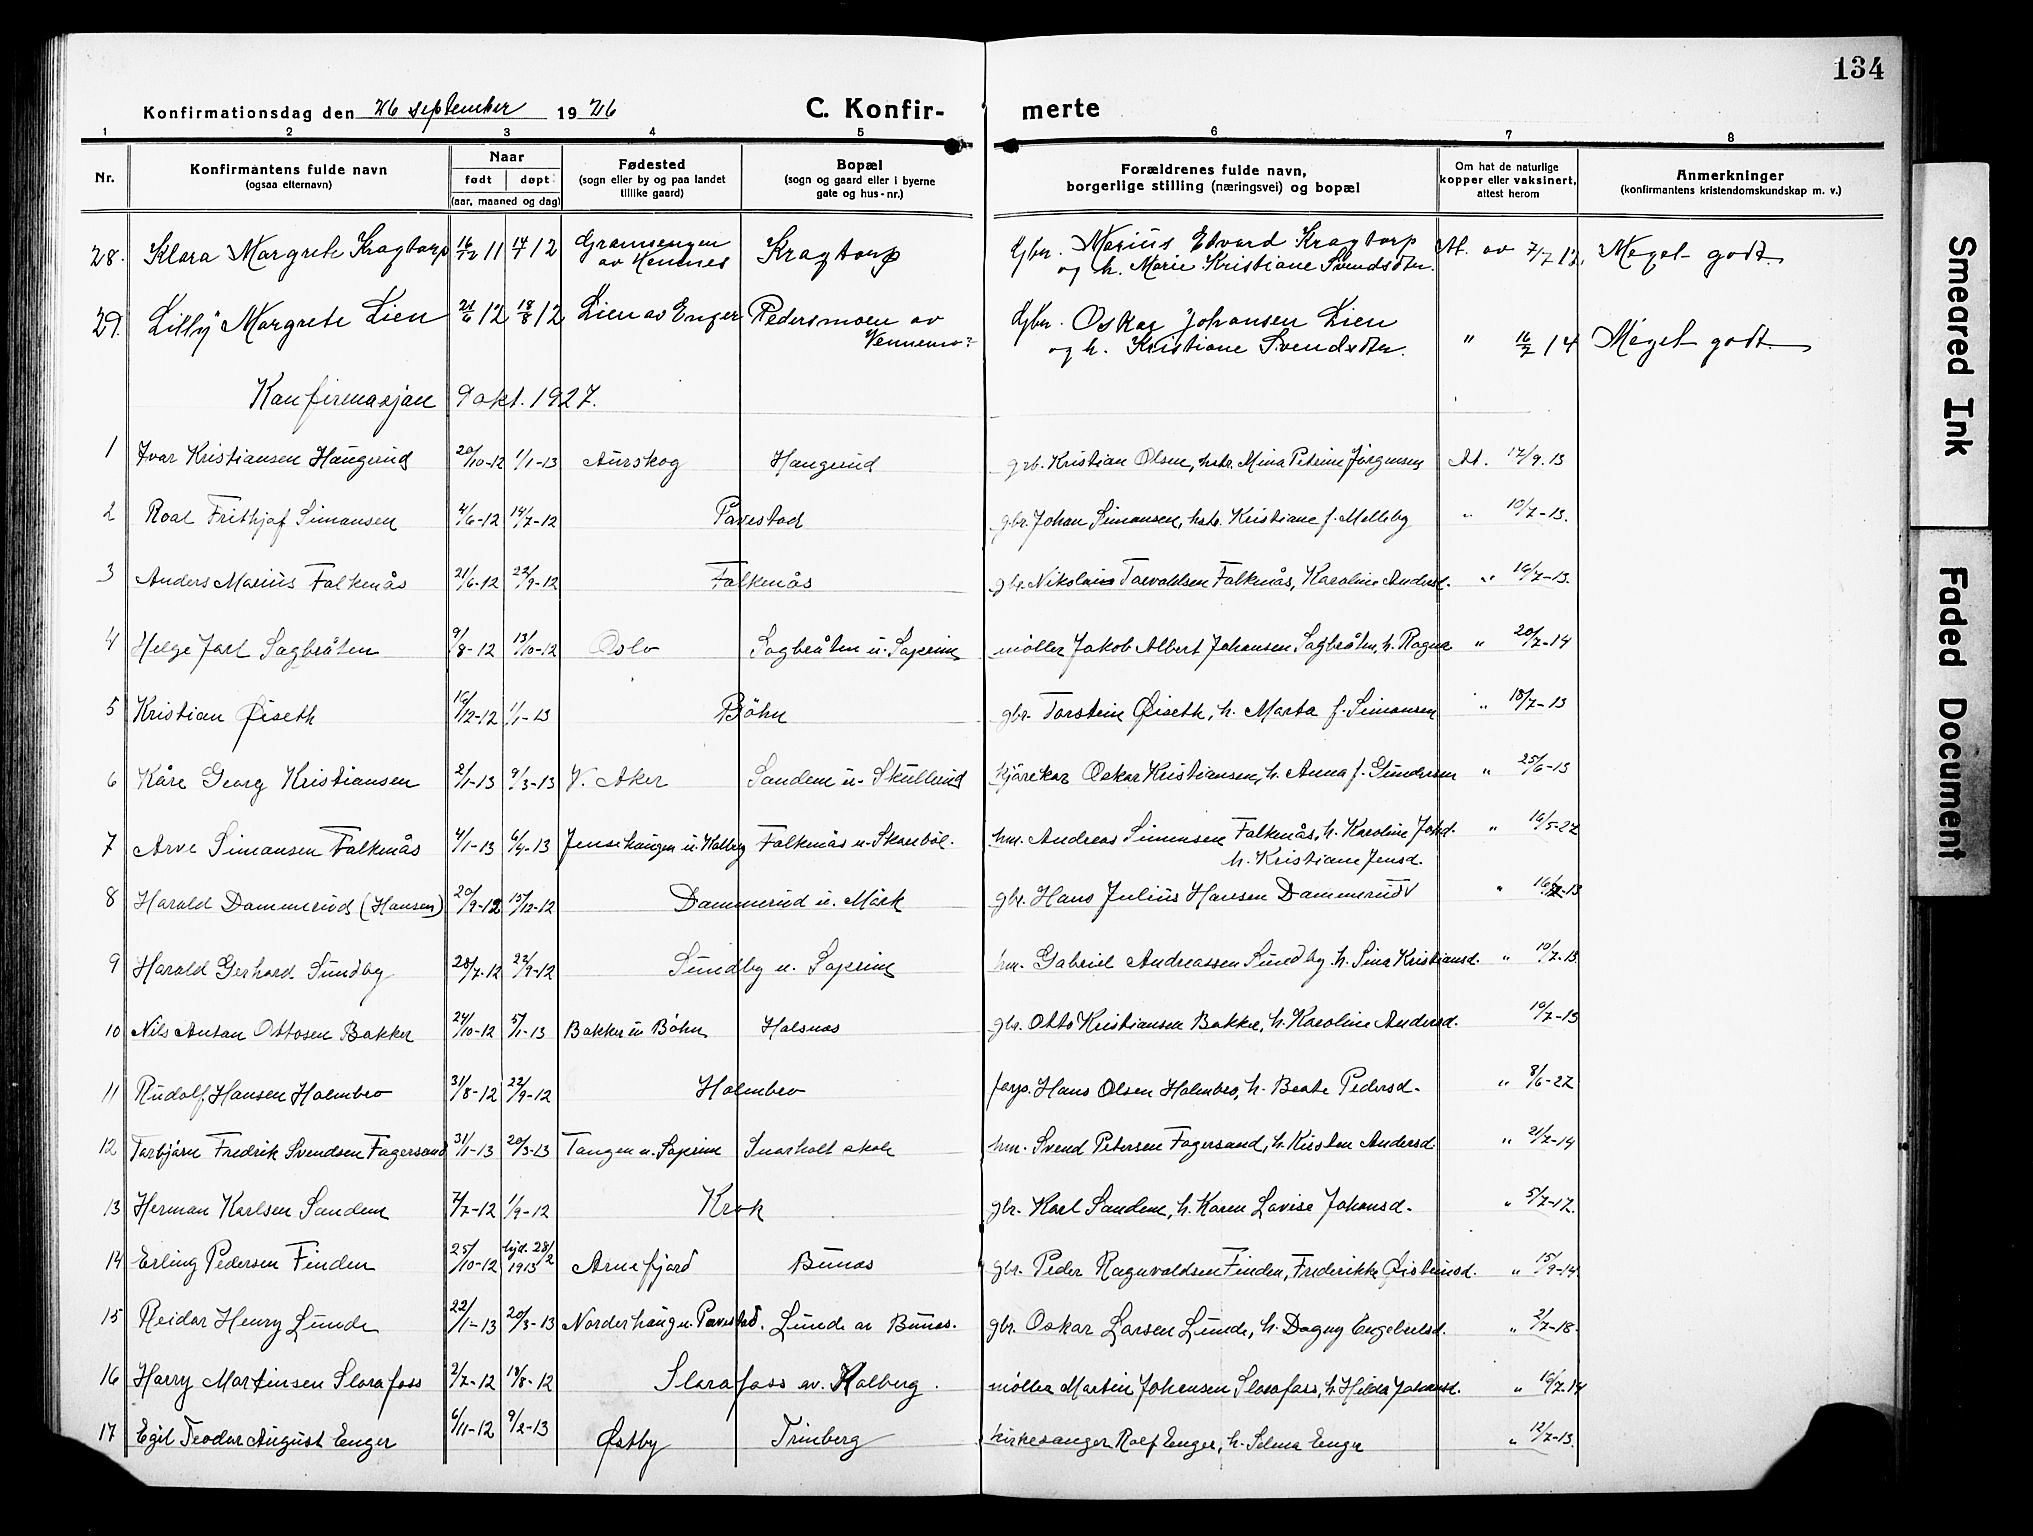 134
Konfirmationsdag den 26 september 1926 C. Konfirmerte
1 2 3 4 5 6 7 8
Nr. Konfirmantens fulde navn (ogsaa efternavn) Naar født døpt (aar, maaned og dag) Fødested (sogn eller by og paa landet tillike gaard) Bopæl (sogn og gaard eller i byerne gate og hus-nr.) Forældrenes fulde navn, borgerlige stilling (næringsvei) og bopæl Om hat de naturlige kopper eller vaksinert, attest herom Anmerkninger (konfirmantens kristendomskundskap m. v.)
28. Klara Margrete Kragtorp 16/12 11 12 Kragtorp Gbr. Marius Edvard Kragtorp At. av 7/7 12, Meget godt.
av og h. Marie Kristiane Svendsdter.
29. Lilly Margrete Lien 21/6 12 18/8 12 Lien av Enger Pedersmoen av Gbr. Oskar Johansen Lien " 16/7 14 Meget godt.
og h. Kristiane Svendsdter.
Konfirmasjon 9 okt. 1927.
1 Ivar Kristiansen Haugerud 20/10-12 1/1-13 Aurskog Haugerud grb. Kristian Olsen, hstr. Mina Petrine Jørgensen At. 17/9.13
2 Roal Frithjof Simonsen 4/6-12 14/7-12 Pavestad gbr. Johan Simonsen, hstr. Kristiane f. Melleby " 10/7-13.
3 Anders Marius Falkenås 21/6-12 22/9-12 Falkenås gbr. Nikolais Torvaldsen Falkenås, Karoline Andersd. " 16/7-13.
4 Helge Jarl Sagbråten 9/8-12 13/10-12 Oslo Sagbråten u. Soprim møller Jakob Albert Johansen Sagbråten, h. Ragna " 20/7-14
5 Kristian Øiseth 16/12-12 1/1-13 Böhn gbr. Torstein Øiseth, h. Marta f. Simonsen " 18/7-13
6 Kåre Georg Kristiansen 2/1-13 9/3-13 V. Aker Sandem u. Skullerud kjørekar Oskar Kristiansen, h. Anna f. Gundersen " 25/6-13
7 Arve Simonsen Falkenås 4/1-13 6/4-13 Jensehaugen u. Kolberg Falkenås u. Skarbøl. hm. Andreas Simonsen Falkenås, h. Karoline Johd. " 16/5-27
h. Kristiane Jensd.
8 Harald Dammerud (Hansen) 20/9-12 15/12-12 Dammerud u. Mörk gbr. Hans Julius Hansen Dammerud " 16/7-13
9 Harald Gerhard Sundby 28/7-12 22/9-12 Sundby u. Soprim hm. Gabriel Andreassen Sundby h. Sina Kristiansd. " 10/7-13
10 Nils Anton Ottosen Bakker 24/10-12 5/1-13 Bakker u Böhn Holsnes gbr. Otto Kristiansen Bakker, h. Karoline Andersd. 10/7-13
11 Rudolf Hansen Holmbro 31/8-12 22/9-12 Holmbro forp. Hans Olsen Holmbro, h. Beate Pedersd. " 8/6-27
12 Torbjørn Fredrik Svendsen Fagersand 31/1-13 20/3-13 Tangen u. Soprim Snarholt skole hm. Svend Petersen Fagersand, h. Kirsten Andersd. " 21/7-14
13 Herman Karlsen Sandem 7/7-12 1/9-12 Krok gbr. Karl Sandem, h. Karen Lovise Johansd. " 5/7-17.
14 Erling Pedersen Finden 25/10-12 hjd. 28/2 1913 Arnefjord Bunes gbr. Peder Ragnvaldsen Finden, Frederikke Øisteinsd. " 15/9-14
15 Reidar Henry Lunde 22/1-13 20/3-13 Norderhaug u. Pavestad. Lunde av Bunes. gbr. Oskar Larsen Lunde, h. Dagny Engebretsd. " 2/7-18.
16 Harry Martinsen Slorafoss 2/7-12 18/8-12 Slorafoss av. Kolberg. møller Martin Johansen Slorafoss, h. Hilda Johansd. " 16/7-14
17 Egil Teodor August Enger 6/11-12 9/2-13 Østby Trinberg kirkesanger Rolf Enger, h. Selma Enger " 12/7-13.
Smeared Ink
Faded Document